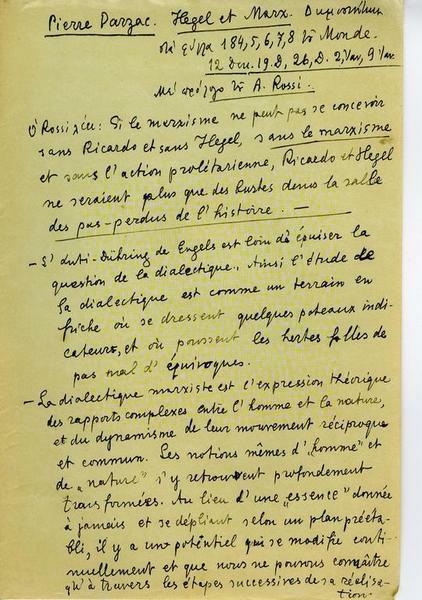 Pierre Darzac. Hegel et Marx. Δημοσιεύτηκε
στὰ φύλλα 184,5,6,7,8 τοῦ Monde.
12 Déc. 19.D, 26, D. 2, Jan, 9 Jan.
Μὲ πρόλογο τοῦ A. Rossi.
Ὁ Rossi λέει: Si le marxisme ne peut pas se concevoir
sans Ricardo et sans Hegel, sans le marxisme
et sans l'action prolétarienne, Ricardo et Hegel
ne seraient plus que des bustes dans la salle
des pas-perdus de l'histoire. —
— L'Anti-Dühring de Engels est loin d'épuiser la
question de la dialectique. Ainsi l'étude de
la dialectique est comme un terrain en
friche où se dressent quelques poteaux indi-
cateurs, et où poussent les herbes folles de
pas mal d'équivoques.
— La dialectique marxiste est l'expression théorique
des rapports complexes entre l'homme et la nature,
et du dynamisme de leur mouvement réciproque
et commun. Les notions mêmes d'„homme" et
de „nature" s'y retrouvent profondément
transformées. Au lieu d'une „essence" donnée
à jamais et se dépliant selon un plan prééta-
bli, il y a un potentiel qui se modifie conti-
nuellement et que nous ne pouvons connaître
qu'à travers les étapes successives de sa réalisa-
tion.